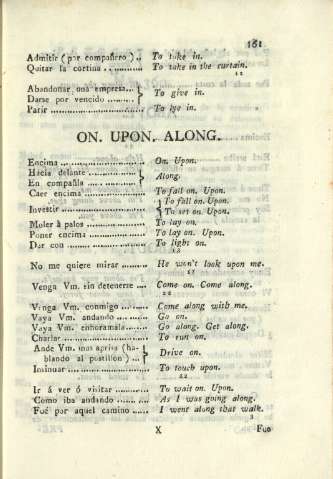 161
Admitir ( por compañero ) .. To take in.
Quitar la cortina ............ To take in the curtain.
12
Abandonar, una empresa.. } To give in.
Darse por vencido ........
Parir ........................ To lye in.
ON. UPON. ALONG.
Encima ...................... On. Upon.
Hacia delante ............ } Along.
En compañia ..............
Caer encima ................ To fall on. Upon.
Investir .................... { To fall on. Upon.
To set on. Upon.
Moler à palos .............. To lay on.
Poner encima .............. To lay on. Upon.
Dar con .................... To light on.
No me quiere mirar ......... He won't look upon me.
Venga Vm. sin detenerse .... Come on. Come along.
Venga Vm. conmigo ......... Come along with me.
Vaya Vm. andando .......... Go on.
Vaya Vm. enhoramala....... Go along. Get along.
Charlar .................... To run on.
Ande Vm. mas aprisa (ha- } Drive on.
blando al postillon ) ...
Insinuar .................... To touch upon.
Ir á ver ó visitar .......... To wait on. Upon.
Como iba andando .......... As I was going along.
Fué por aquel camino ...... I went along that walk.
X Fuo